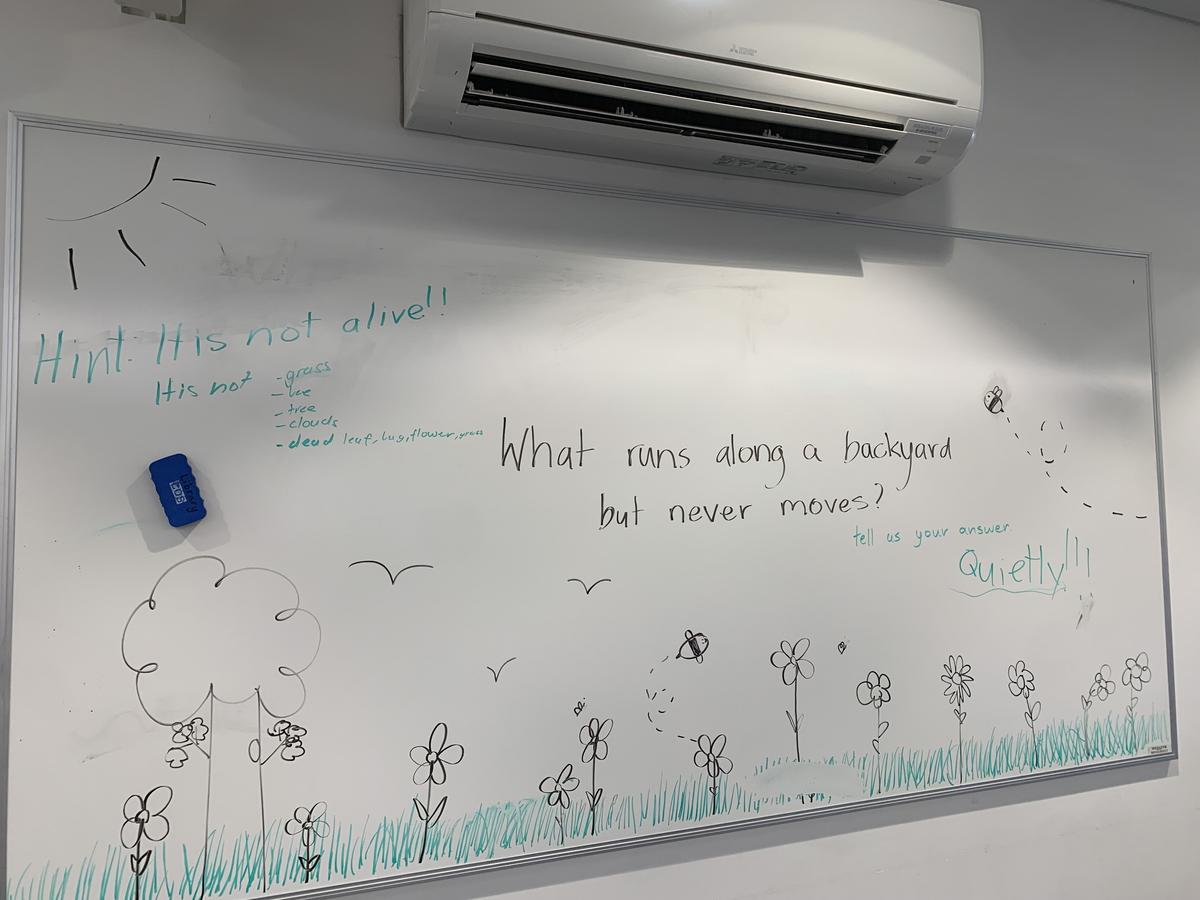 MITSUBISHI ELECTRIC
Hint: It is not alive!!
It is not - grass
- bee
- tree
- clouds
- dead leaf, bug, flower, grass
What runs along a backyard
but never moves?
tell us your answer
Quietly!!!
Library